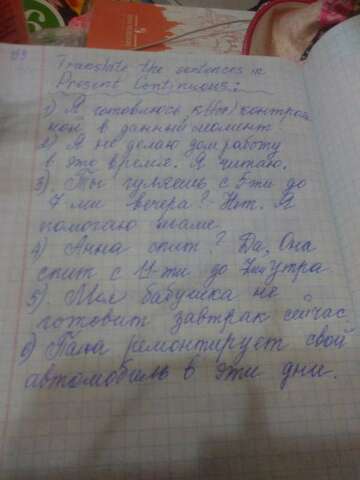 Translate the sentences in
Present Continuous:
1) Я готовлюсь к контроль
ной в данный момент
2) Я не делаю дом.работу
в это время. Я читаю.
3). Ты гуляешь с 5-ти до
7-ми вечера? Нет. Я
помогаю маме
4) Анна спит? Да, Она
спит с 11-ти до 7ми утра
5). Моя бабушка не
готовит завтрак сейчас
6) Папа ремонтирует свой
автомобиль в эти дни.